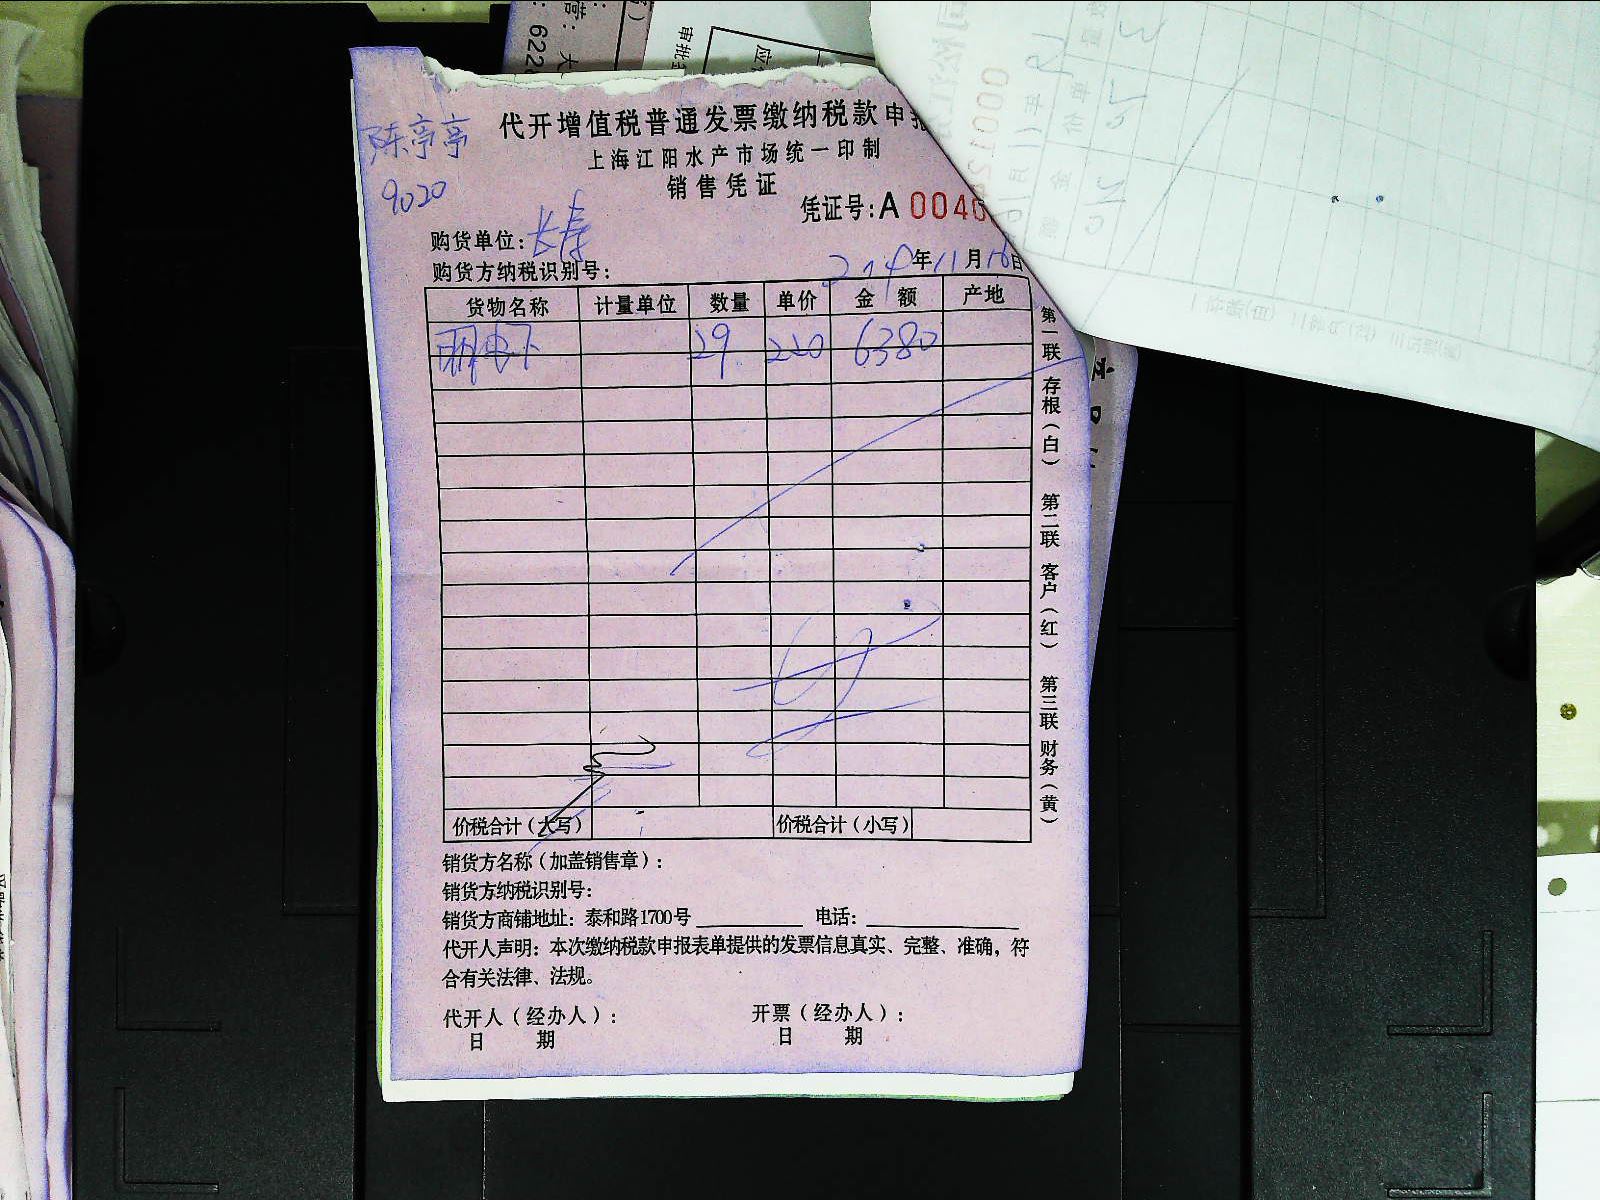 陈亭亭
9020
代开增值税普通发票缴纳税款申报
上海江阳水产市场统一印制
销售凭证
凭证号:A 0040
购货单位: 长寿
购货方纳税识别号:
年11月16日
货物名称 计量单位 数量 单价 金额 产地
29 220 6380
第一联 存根(白) 第二联 客户(红) 第三联 财务(黄)
价税合计(大写) 价税合计(小写)
销货方名称(加盖销售章):
销货方纳税识别号:
销货方商铺地址: 泰和路1700号 电话:
代开人声明: 本次缴纳税款申报表单提供的发票信息真实、完整、准确, 符
合有关法律、法规。
代开人(经办人): 开票(经办人):
日 期 日 期